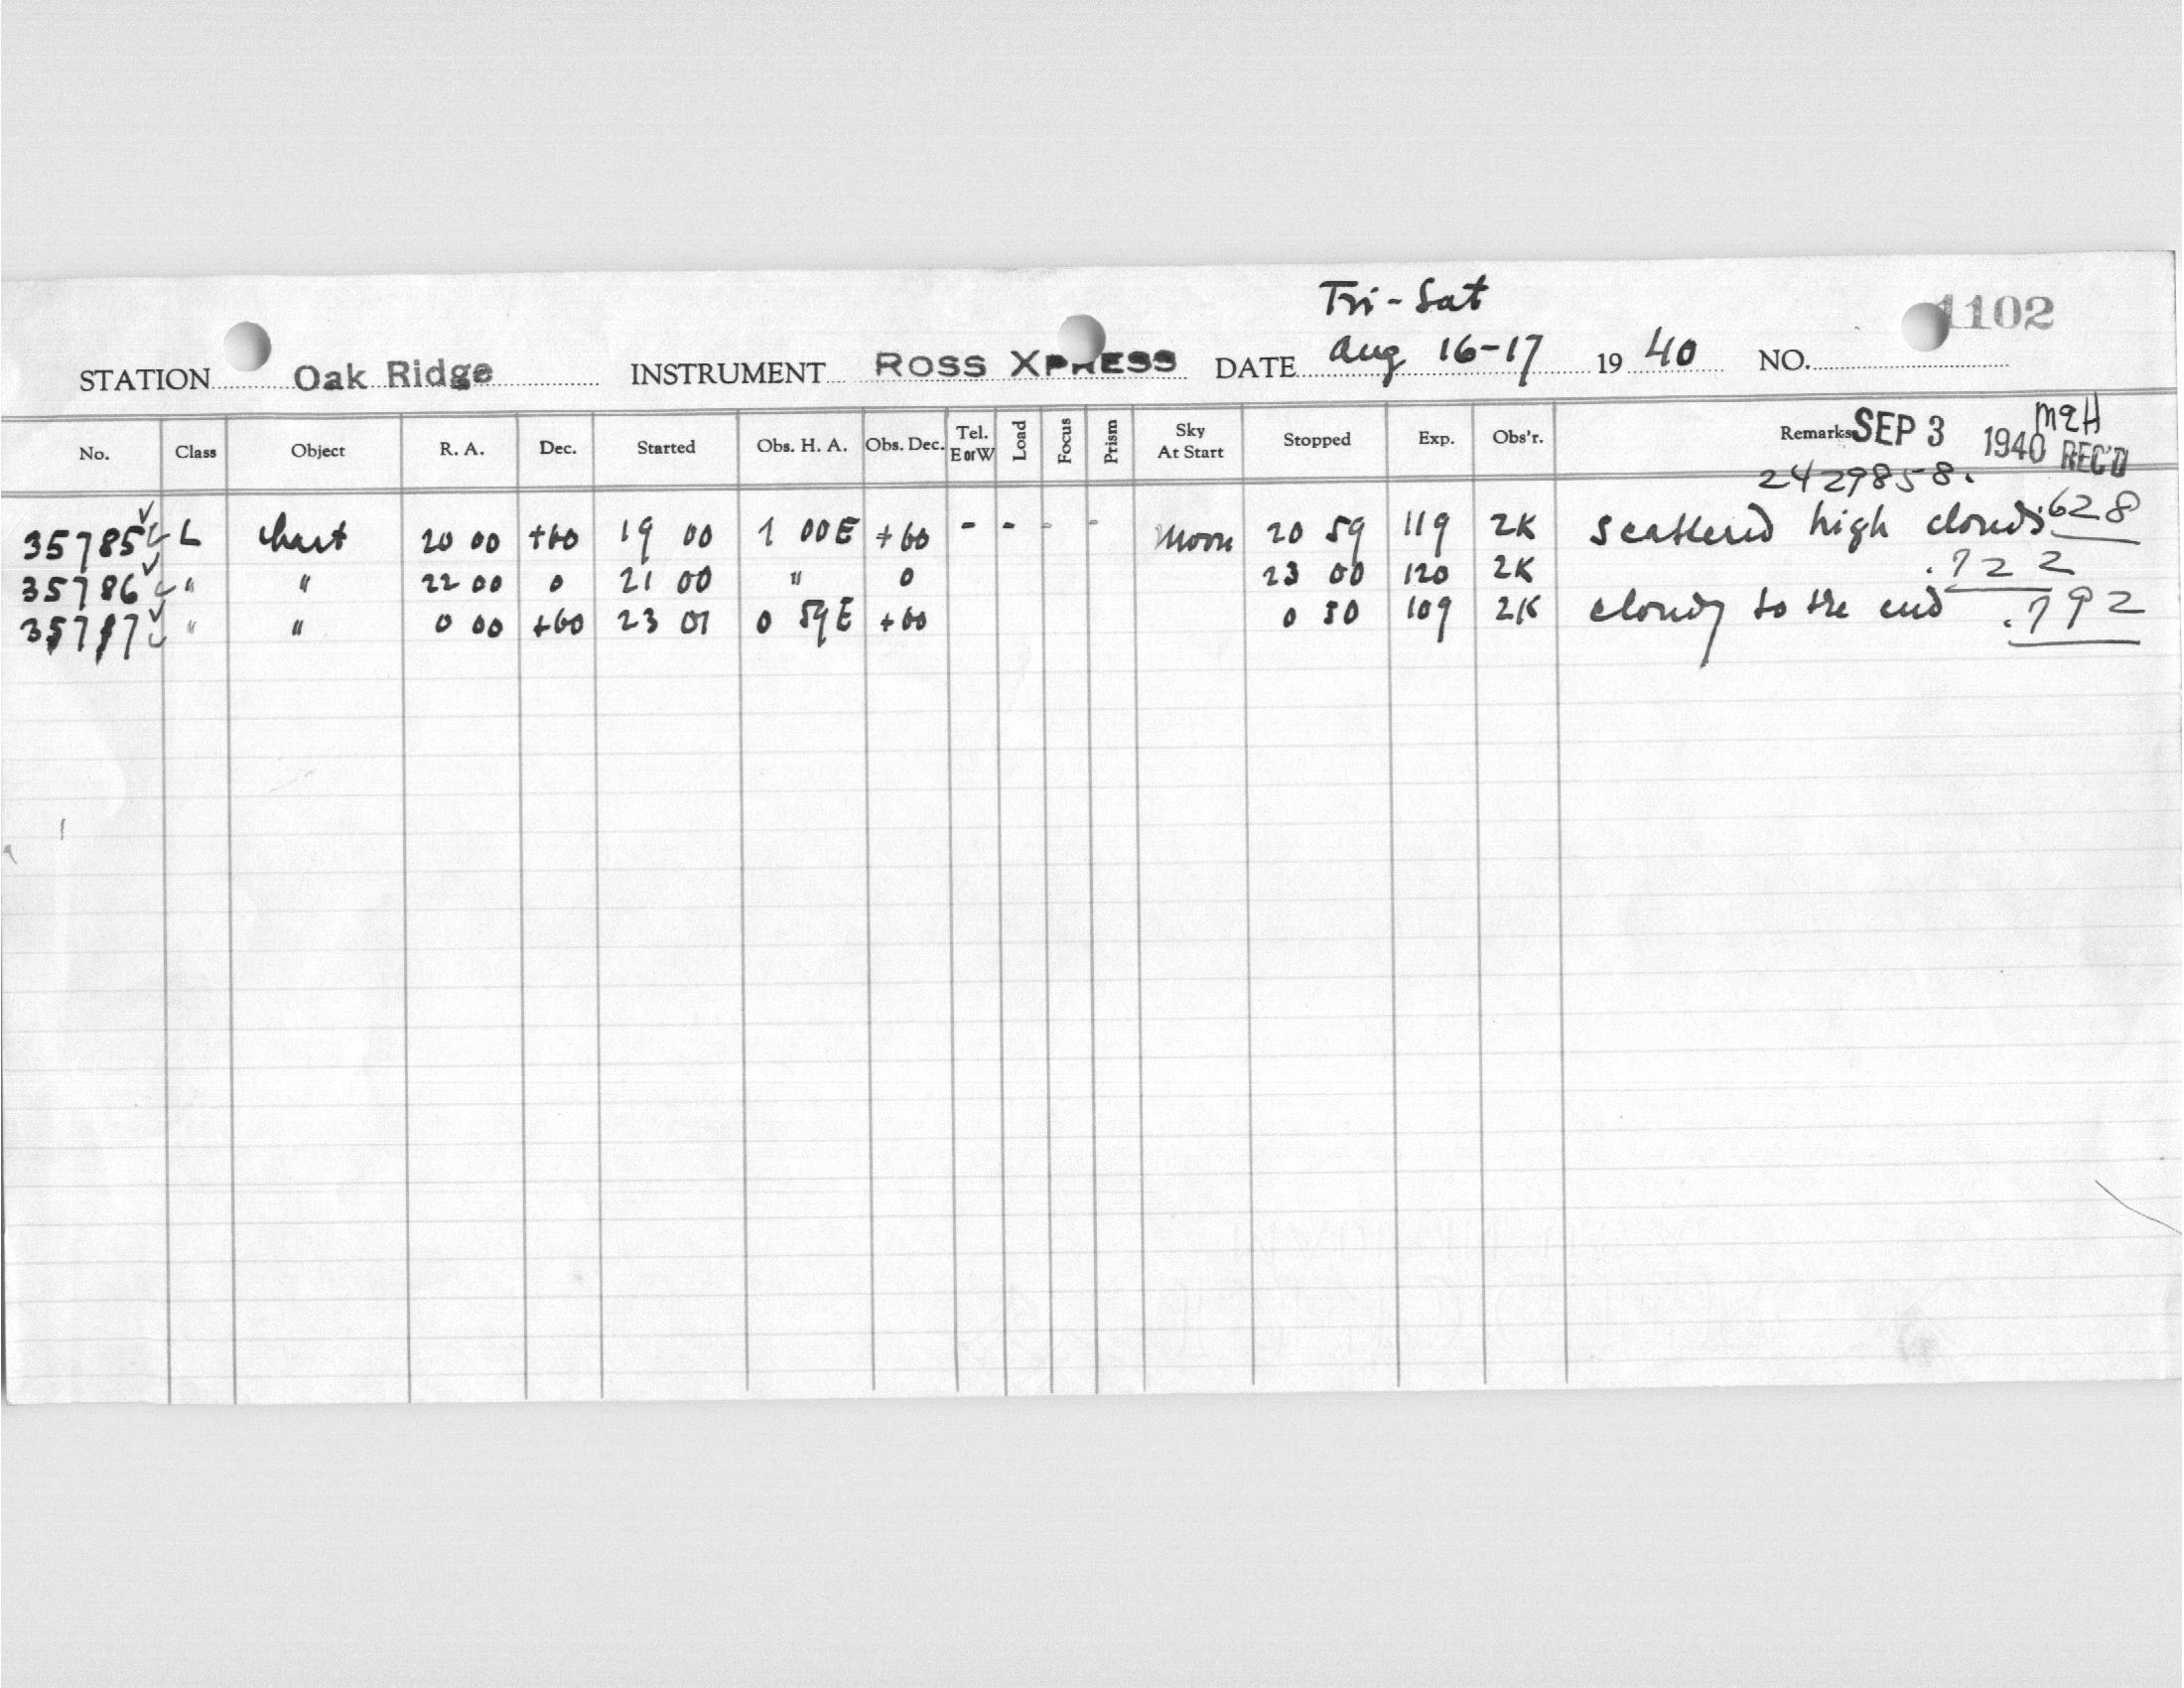 Fri - Sat
1102
STATION Oak Ridge INSTRUMENT ROSS XPRESS DATE Aug 16-17 19 40 NO.
No. Class Object R. A. Dec. Started Obs. H. A. Obs. Dec. Tel. E or W Load Focus Prism Sky At Start Stopped Exp. Obs'r. Remarks SEP 3 1940 REC'D
2429858.
35785 L chart 20 00 +60 19 00 1 00E +60 - - - - Moon 20 59 119 2K scattered high clouds .628
35786 " " 22 00 0 21 00 " 0 23 00 120 2K .722
35787 " " 0 00 +60 23 01 0 59E +60 0 50 109 2K cloudy to the end .792